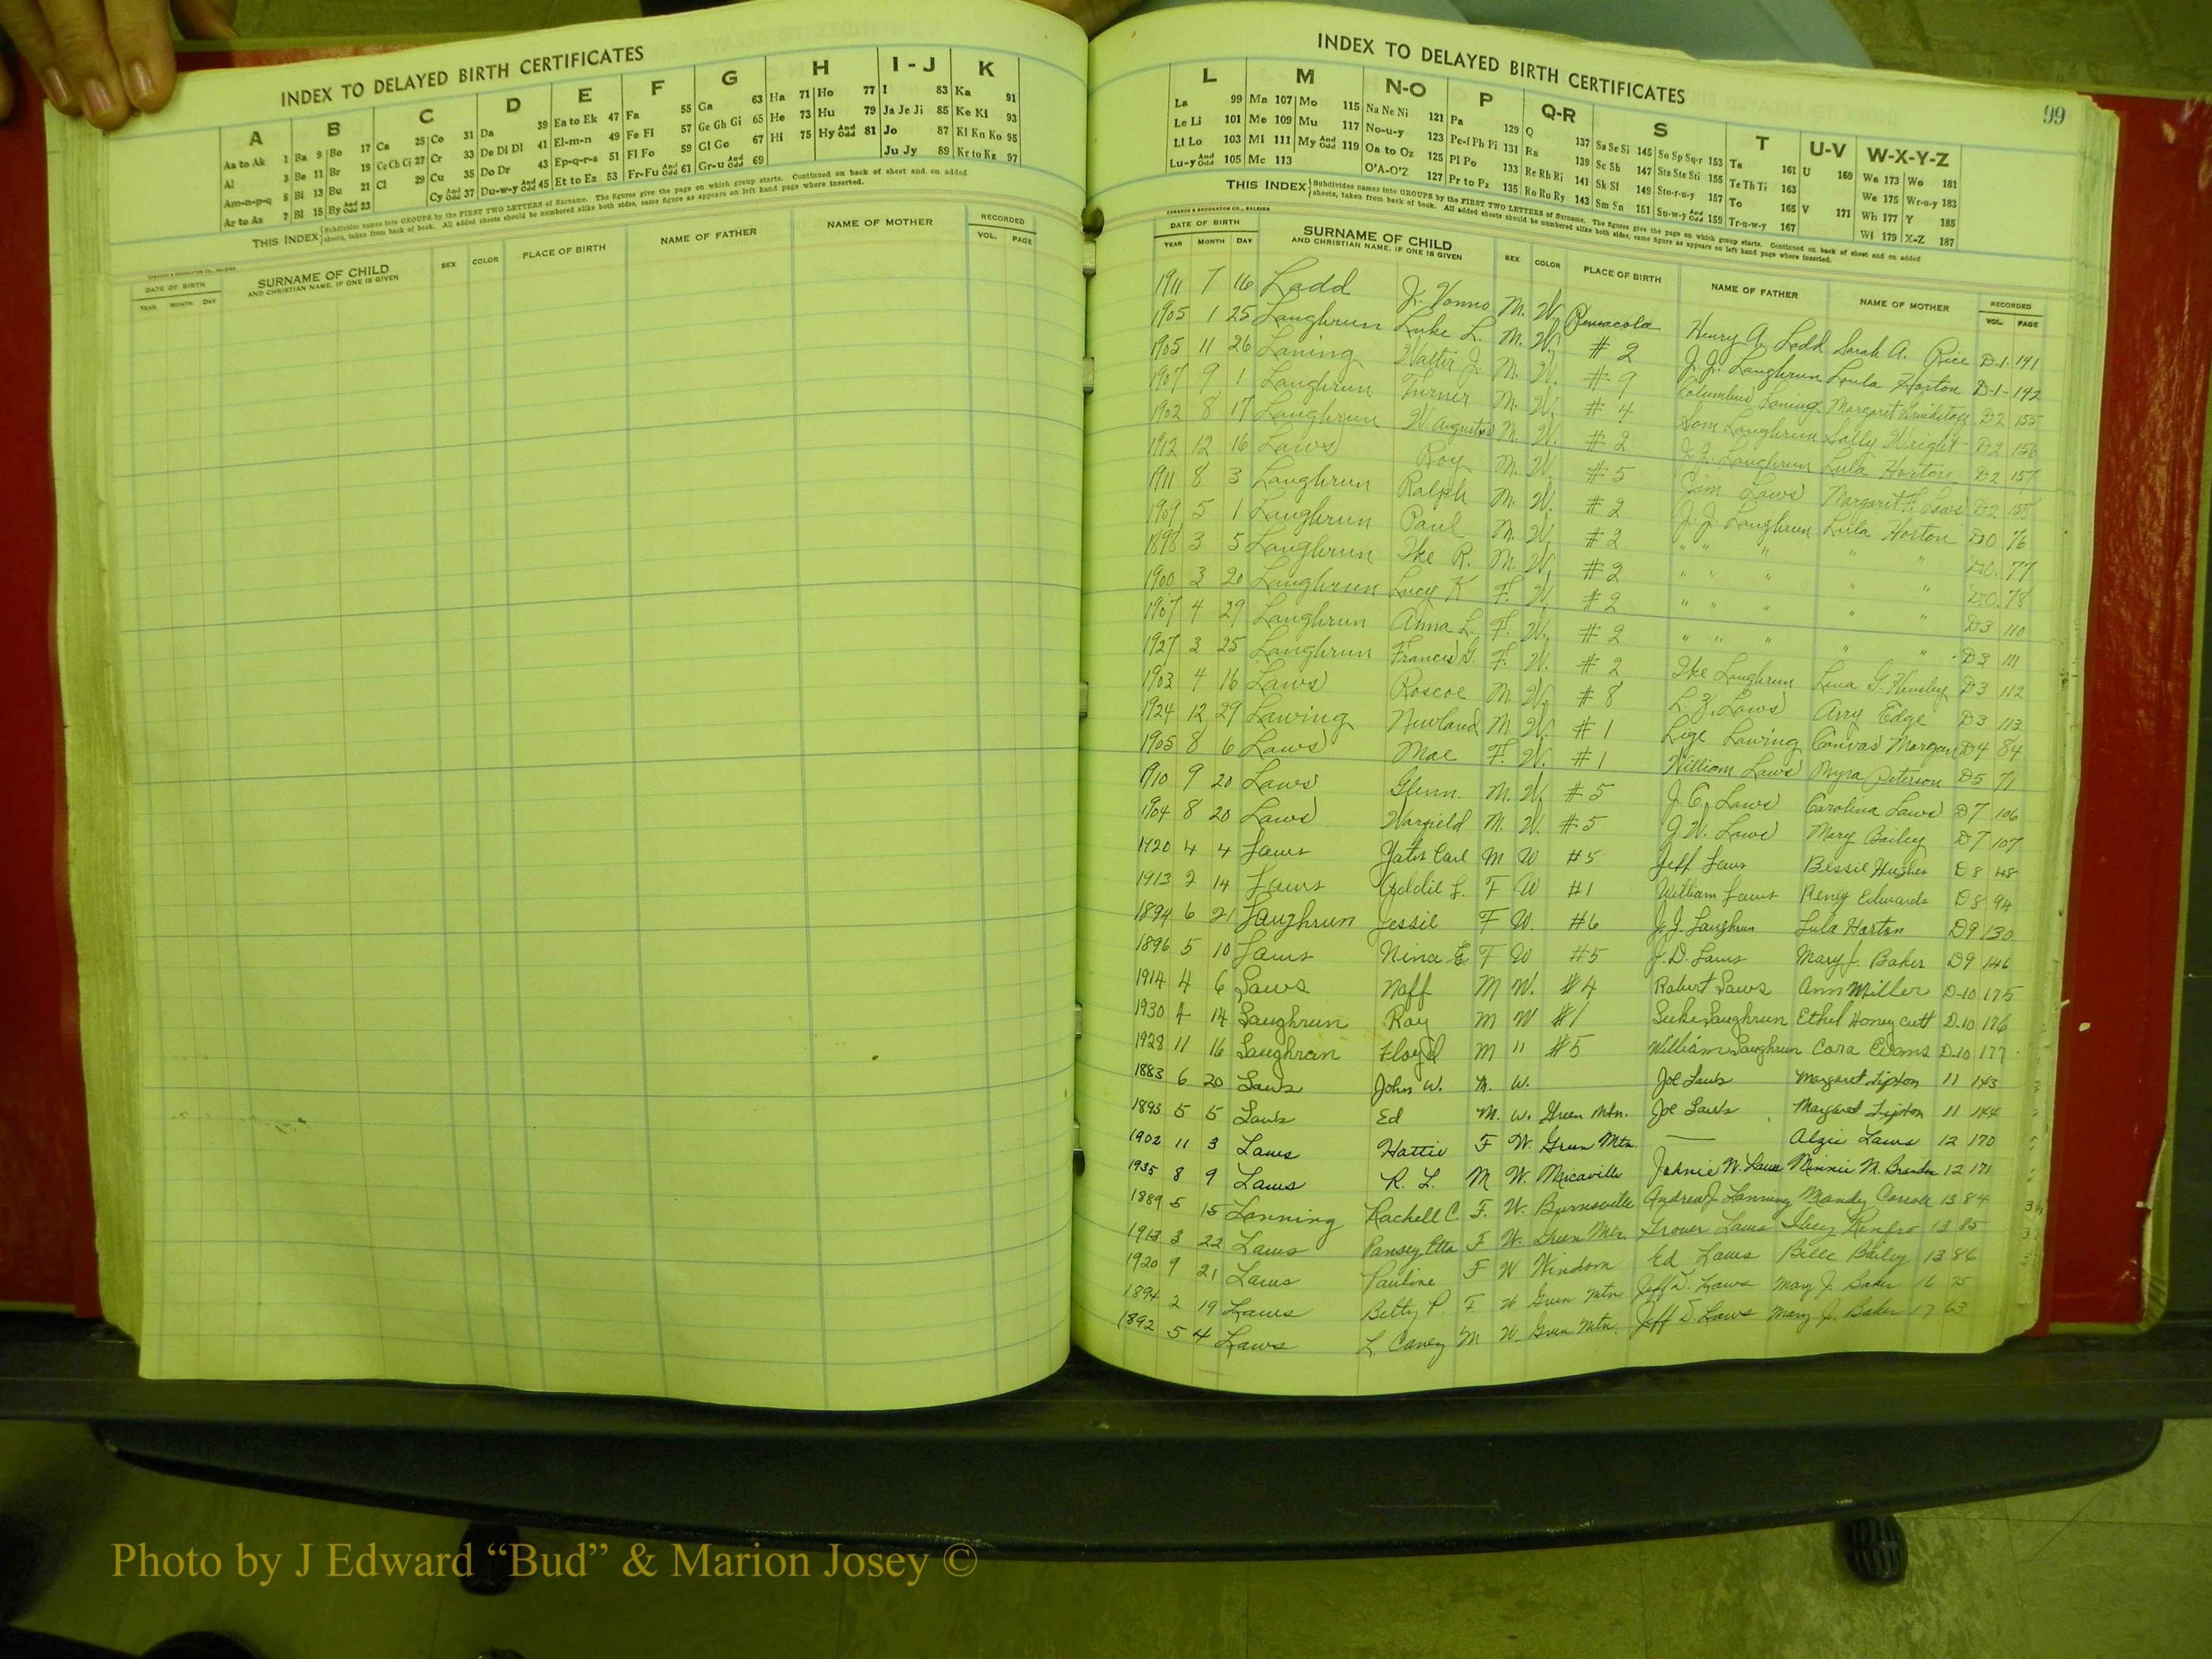 INDEX TO DELAYED BIRTH CERTIFICATES
A B C D E F G H I - J K
Aa to Ak 1 Ba 9 Bo 17 Ca 25 Co 31 Da 39 Ea to Ek 47 Fa 55 Ga 63 Ha 71 Ho 77 I 83 Ka 91
Al 3 Be 11 Br 19 Ce Ch Ci 27 Cr 33 De Di Dl 41 El-m-n 49 Fe Fi 57 Ge Gh Gi 65 He 73 Hu 79 Ja Je Ji 85 Ke Ki 93
Am-n-p-q 5 Bi 13 Bu 21 Cl 29 Cu 35 Do Dr 43 Ep-q-r-s 51 Fl Fo 59 Gl Go 67 Hi 75 Hy And Odd 81 Jo 87 Kl Kn Ko 95
Ar to Az 7 Bl 15 By And Odd 23 Cy And Odd 37 Du-w-y And Odd 45 Et to Ez 53 Fr-Fu And Odd 61 Gr-u And Odd 69 Ju Jy 89 Kr to Kz 97
THIS INDEX Subdivides names into GROUPS by the FIRST TWO LETTERS of Surname. The figures give the page on which group starts. Continued on back of sheet and on added
sheets, taken from back of book. All added sheets should be numbered alike both sides, same figure as appears on left hand page where inserted.
EDWARDS & BROUGHTON CO., RALEIGH
DATE OF BIRTH SURNAME OF CHILD SEX COLOR PLACE OF BIRTH NAME OF FATHER NAME OF MOTHER RECORDED
YEAR MONTH DAY AND CHRISTIAN NAME, IF ONE IS GIVEN VOL. PAGE
INDEX TO DELAYED BIRTH CERTIFICATES
99
L M N-O P Q-R S T U-V W-X-Y-Z
La 99 Ma 107 Mo 115 Na Ne Ni 121 Pa 129 Q 137 Sa Se Si 145 So Sp Sq-r 153 Ta 161 U 169 Wa 173 Wo 181
Le Li 101 Me 109 Mu 117 No-u-y 123 Pe-f Ph Pi 131 Ra 139 Sc Sh 147 Sta Ste Sti 155 Te Th Ti 163 We 175 Wr-u-y 183
Ll Lo 103 Mi 111 My And Odd 119 Oa to Oz 125 Pl Po 133 Re Rh Ri 141 Sk Sl 149 Sto-r-u-y 157 To 165 V 171 Wh 177 Y 185
Lu-y And Odd 105 Mc 113 O'A-O'Z 127 Pr to Pz 135 Ro Ru Ry 143 Sm Sn 151 Su-w-y And Odd 159 Tr-u-w-y 167 Wi 179 X-Z 187
THIS INDEX Subdivides names into GROUPS by the FIRST TWO LETTERS of Surname. The figures give the page on which group starts. Continued on back of sheet and on added
sheets, taken from back of book. All added sheets should be numbered alike both sides, same figure as appears on left hand page where inserted.
EDWARDS & BROUGHTON CO., RALEIGH
DATE OF BIRTH SURNAME OF CHILD SEX COLOR PLACE OF BIRTH NAME OF FATHER NAME OF MOTHER RECORDED
YEAR MONTH DAY AND CHRISTIAN NAME, IF ONE IS GIVEN VOL. PAGE
1911 7 16 Ladd J. M. W. Pensacola Henry A. Ladd Sarah A. Rice D-1- 141
1905 1 25 Laughrun Luke L. M. W. # 2 J. J. Laughrun Loula Horton D-1- 142
1905 11 26 Laning Walter J. M. W. # 9 Columbus Laning Margaret D2 155
1907 9 1 Laughrun Turner M. W. # 4 Som Laughrun Sally Wright D2 156
1902 8 17 Laughrun W Augustus M. W. # 2 J. J. Laughrun Lula Horton D2 157
1912 12 16 Laws Roy M. W. # 5 Jim Laws Margaret Laws D2 158
1911 8 3 Laughrun Ralph M. W. # 2 J. J. Laughrun Lula Horton D0 76
1909 5 1 Laughrun Paul M. W. # 2 " " " " " D.0. 77
1898 3 5 Laughrun Ike R. M. W. # 2 " " " " " D.0. 78
1900 3 20 Laughrun Lucy K F. W # 2 " " " " " D3 110
1907 4 29 Laughrun Anna L. F. W. # 2 " " " " " D3 111
1927 3 25 Laughrun Francis G. F. W. # 2 Ike Laughrun Lena G. Hensley D3 112
1903 4 16 Laws Roscoe M. W. # 8 L. Z. Laws Arry Edge D3 113
1924 12 29 Lawing Newland M. W. # 1 Lige Lawing Canvas Morgan D4 84
1905 8 6 Laws Mae F. W. # 1 William Laws Myra Peterson D5 71
1910 9 20 Laws Glenn. M. W. # 5 J. C. Laws Carolina Laws D7 106
1904 8 20 Laws Warfield M. W. # 5 J. W. Laws Mary Bailey D7 107
1920 4 4 Laws Yates Carl M W #5 Jeff Laws Bessie Hughes D8 48
1913 2 14 Laws Addie L. F W #1 William Laws Reney Edwards D8 94
1894 6 21 Laughrun Jessie F W. #6 J. J. Laughrun Lula Horton D9 130
1896 5 10 Laws Nina E F W #5 J. D. Laws Mary J. Baker D9 146
1914 4 6 Laws Noff M W. #4 Robert Laws Ann Miller D-10 175
1930 4 14 Laughrun Ray M W #1 Luke Laughrun Ethel Honeycutt D-10 176
1928 11 16 Laughran Floyd M " #5 William Laughrun Cora Evans D-10 177
1883 6 20 Laws John W. M. W. Joe Laws Margaret Tipton 11 143
1893 5 5 Laws Ed M. W. Green Mtn. Joe Laws Margaret Tipton 11 144
1902 11 3 Laws Hattie F W. Green Mtn. — Alzie Laws 12 170
1935 8 9 Laws R. L. M W. Micaville Johnie W. Laws Minnie N. 12 171
1889 5 15 Lanning Rachell C. F. W. Burnsville Andrew J. Lanning Mandy 13 84
1913 3 22 Laws Pansey Etta F W. Green Mtn. Grover Laws Renfro 13 85
1920 9 21 Laws Pauline F W Windom Ed Laws Bille Bailey 13 86
1894 2 19 Laws Betty P. F. W Green Mtn Jeff D. Laws Mary J. Baker 16 25
1892 5 4 Laws L. Caney M W. Green Mtn. Jeff D Laws Mary J. Baker 17 63
Photo by J Edward “Bud” & Marion Josey ©